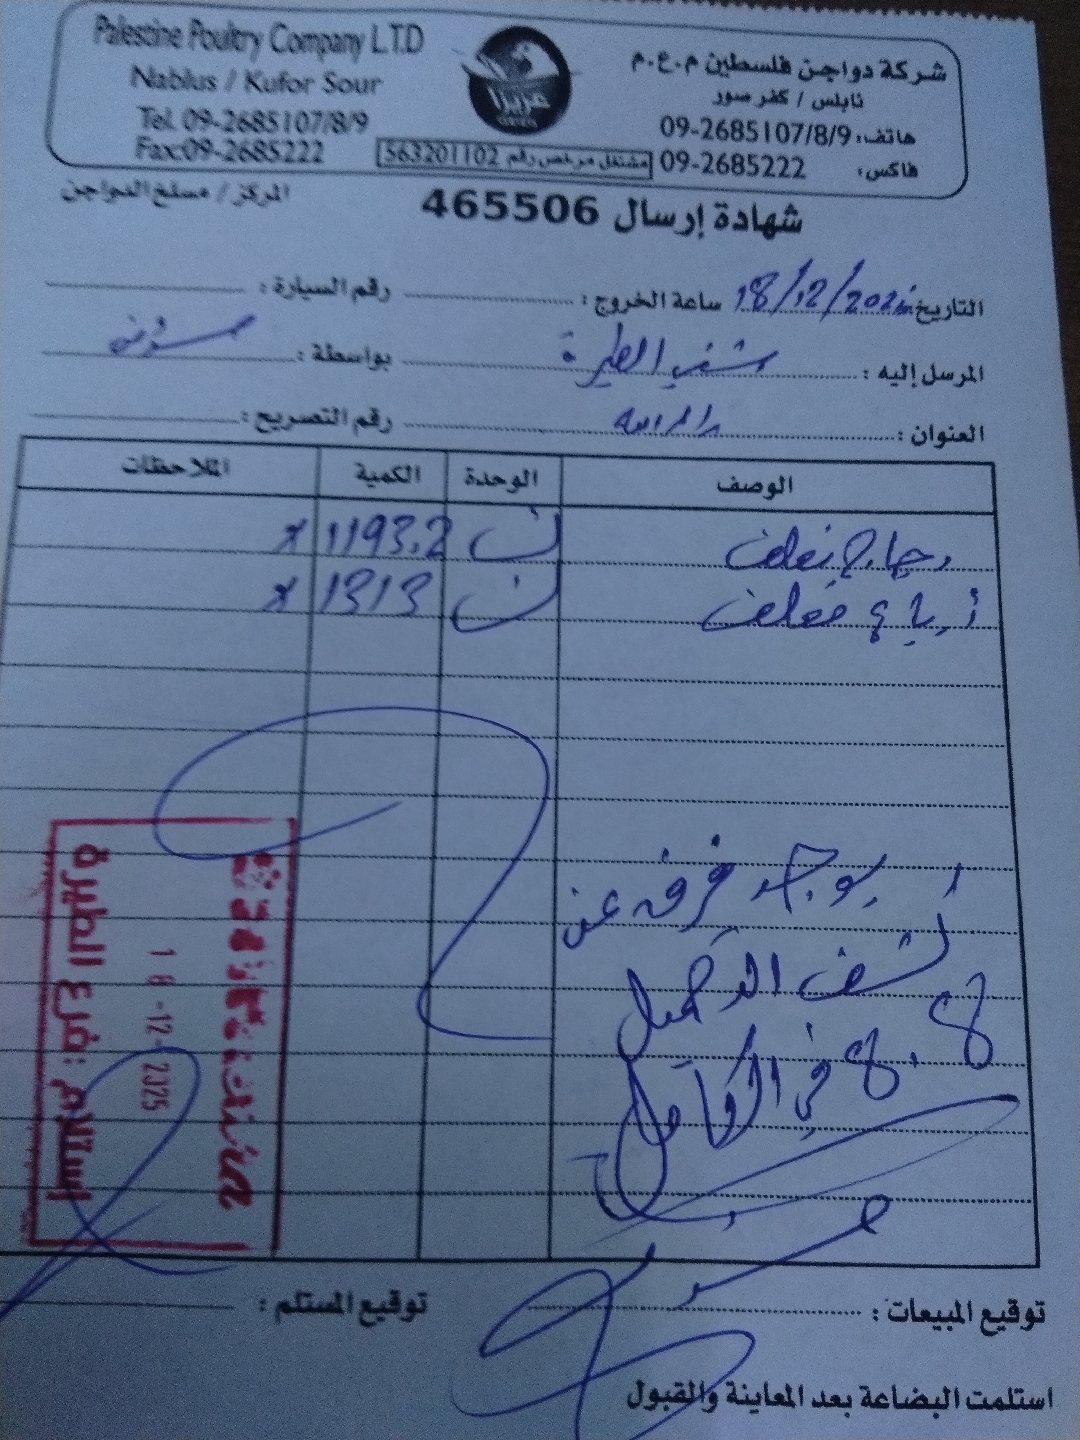 Palestine Poultry Company L.T.D
Nablus / Kufor Sour
Tel. 09-2685107/8/9
Fax:09-2685222
عزيزا
شركة دواجن فلسطين م.ع.م
نابلس / كفر صور
هاتف: 09-2685107/8/9
فاكس: 09-2685222
مشتغل مرخص رقم 563201102
المركز / مسلخ الدواجن
شهادة إرسال 465506
التاريخ: 18/12/202 ساعة الخروج: رقم السيارة:
المرسل إليه: الطيرة بواسطة:
العنوان: رام الله رقم التصريح:
الوصف الوحدة الكمية الملاحظات
دجاج مغلف 1193.2 x
أرباع مغلف 1313 x
يوجد فرق عن
كشف التحميل
8.8 في الكامل
استلام :فرع الطيرة
18-12-2025
توقيع المبيعات: توقيع المستلم:
استلمت البضاعة بعد المعاينة والقبول